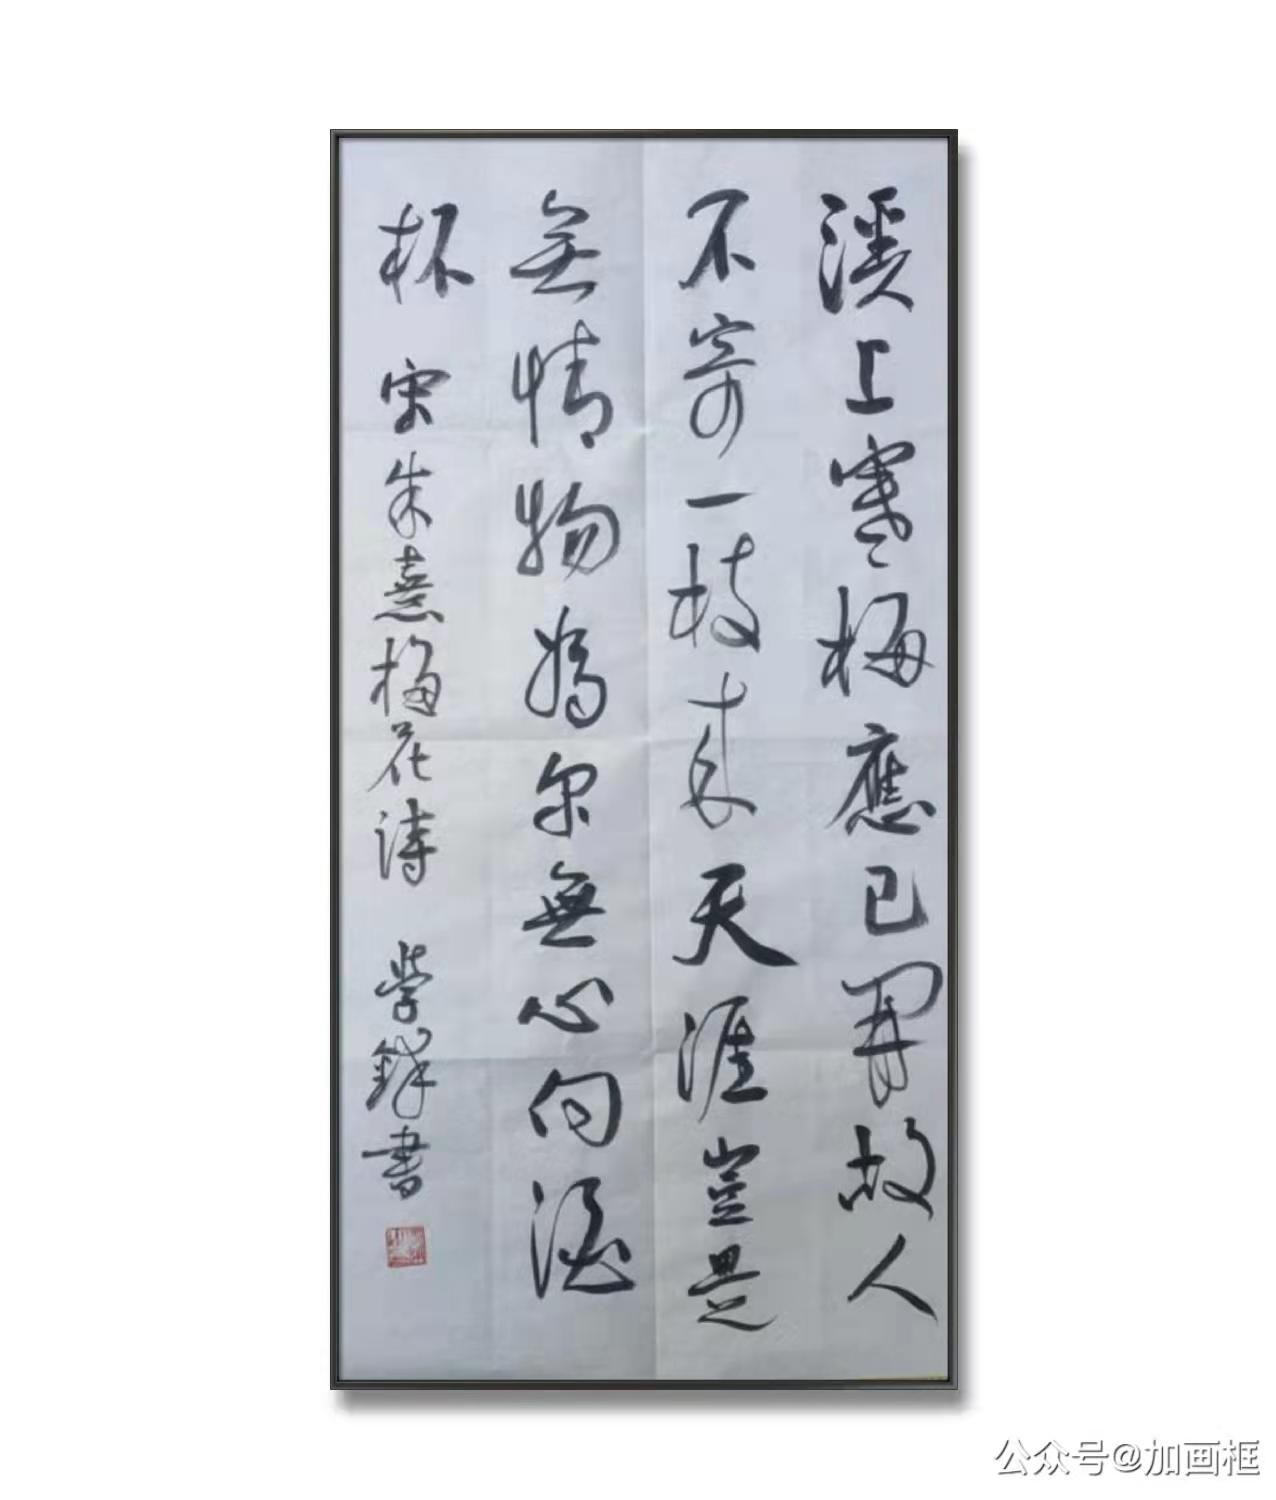 溪上寒梅應已開故人
不寄一枝來天涯豈是
無情物為尔無心向酒
杯 宋朱熹梅花诗 学鋒書
公众号@加画框